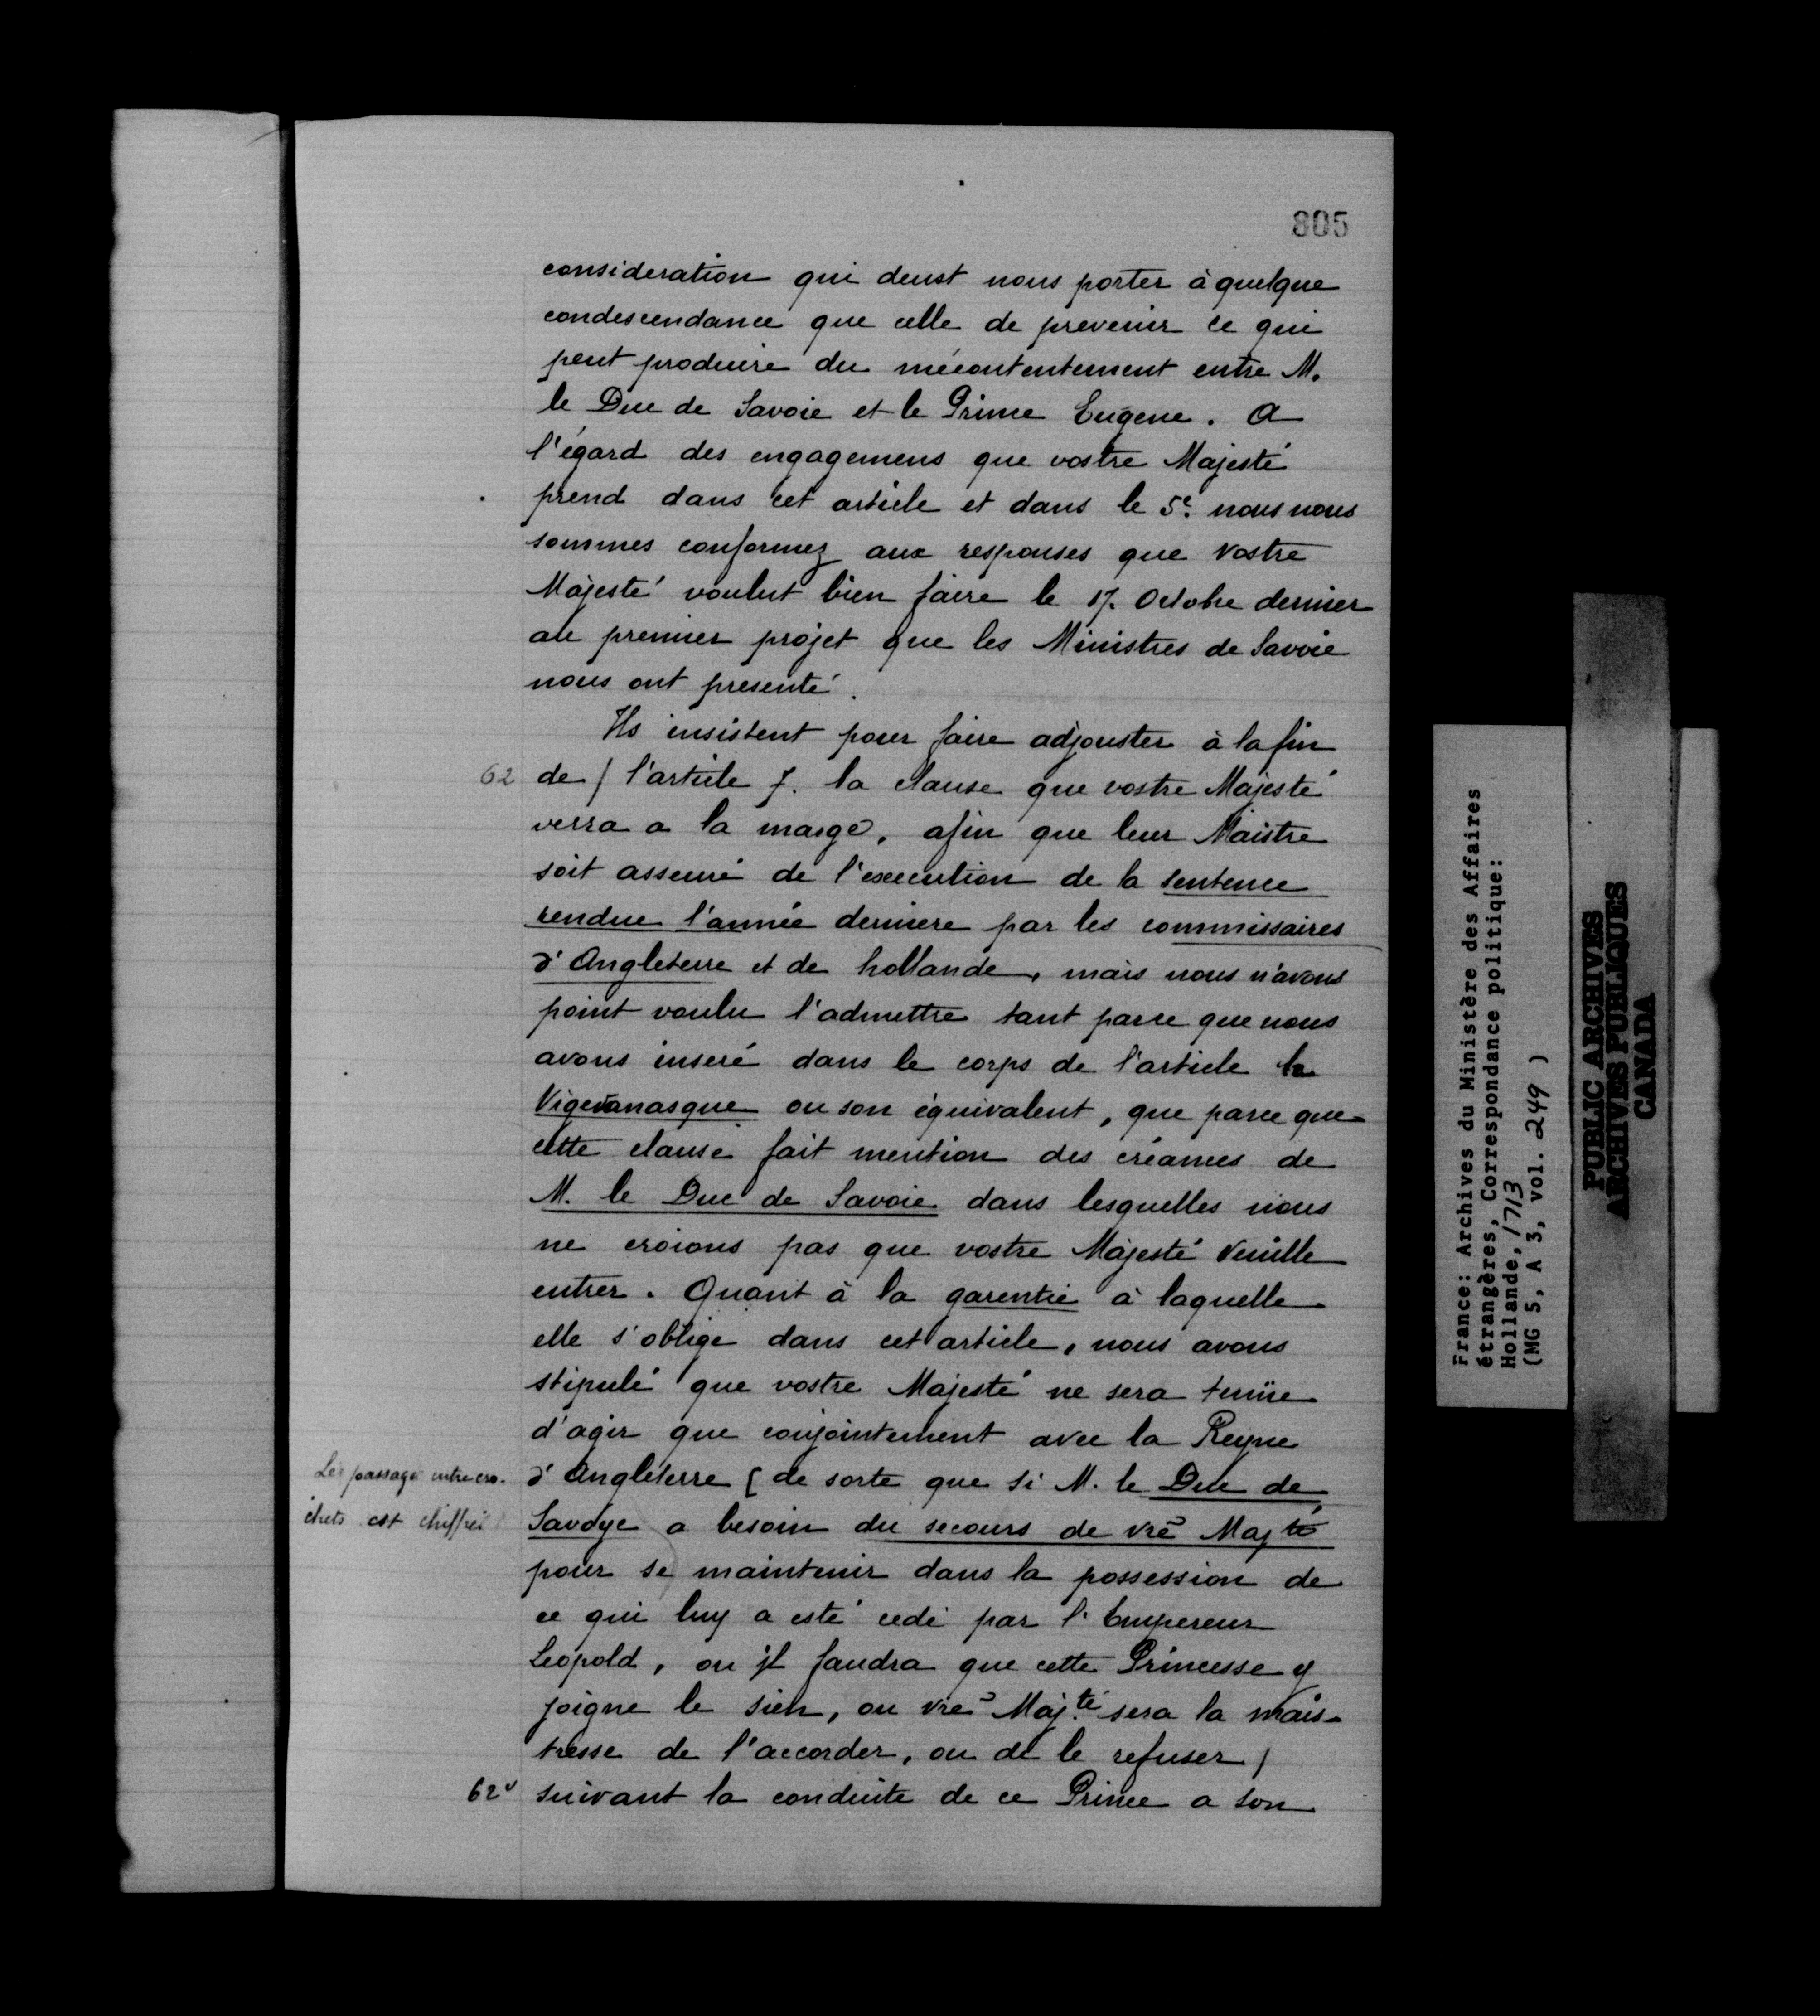 805
consideration qui deust nous porter à quelque
condescendance que celle de prevenir ce qui
peut produire du mécontentement entre M.
le Duc de Savoie et le Prince Eugene. A
l'égard des engagemens que vostre Majesté
prend dans cet article et dans le 5e. nous nous
sommes conformez aux responses que Vostre
Majesté voulut bien faire le 17. Octobre dernier
au premier projet que les Ministres de Savoie
nous ont presenté.
Ils insistent pour faire adjouster à la fin
62 de / l'article 7. la clause que vostre Majesté
verra a la marge, afin que leur Maistre
soit asseuré de l'execution de la sentence
rendue l'année derniere par les commissaires
d'Angleterre et de hollande, mais nous n'avons
point voulu l'admettre tant parce que nous
avons inseré dans le corps de l'article le
Vigevanasque ou son équivalent, que parce que
cette clause fait mention des créances de
M. le Duc de Savoie dans lesquelles nous
ne croions pas que vostre Majesté Veuille
entrer. Quant à la garentie à laquelle
elle s'oblige dans cet article, nous avons
stipulé que vostre Majesté ne sera tenüe
d'agir que conjointement avec la Reyne
Le passage entre cro-
chets est chiffré
d'Angleterre [ de sorte que si M. le Duc de
Savoye a besoin du secours de vre Majté
pour se maintenir dans la possession de
ce qui luy a esté cedé par l'Empereur
Leopold, ou jl faudra que cette Princesse y
joigne le sien, ou vre Maj.té sera la mais-
tresse de l'accorder, ou de le refuser /
62v suivant la conduite de ce Prince a son
France: Archives du Ministère des Affaires
étrangères, Correspondance politique:
Hollande, 1713
(MG 5, A 3, vol. 249 )
PUBLIC ARCHIVES
ARCHIVES PUBLIQUES
CANADA